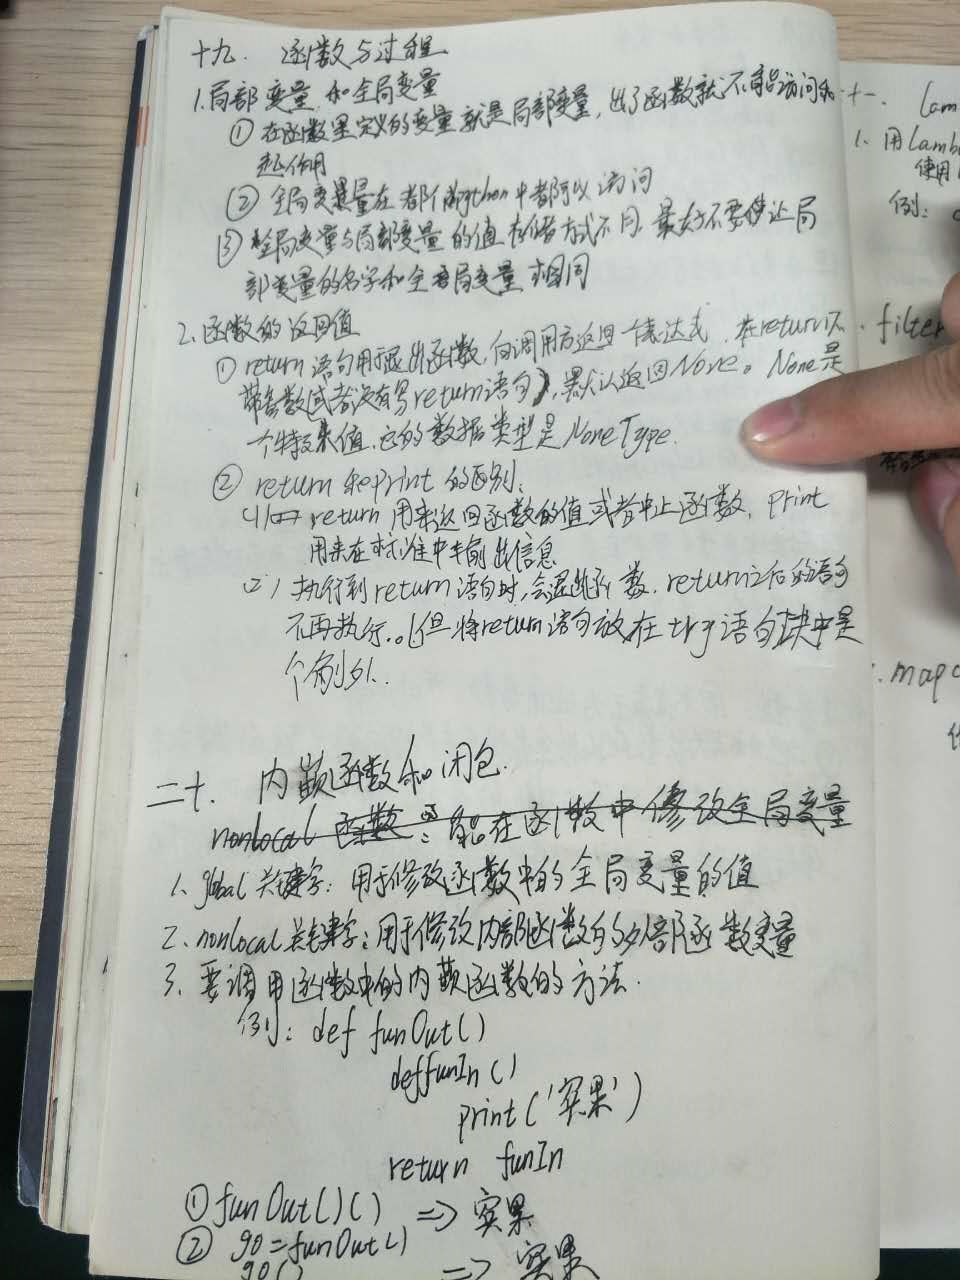 十九. 函数与过程
1.局部变量和全局变量
① 在函数里定义的变量就是局部变量，出了函数就不能访问和
起作用
② 全局变量在都个python中都可以访问
③ 全局变量与局部变量的值存储方式不同，最好不要使让局
部变量的名字和全局变量相同
2.函数的返回值
① return语句用于退出函数，向调用方返回一表达式，在return不
带参数或者没有写return语句），默认返回None。None是
个特殊值，它的数据类型是NoneType.
② return和print的区别：
(1) return用来返回函数的值或者中止函数，print
用来在标准中输出信息
(2) 执行到return语句时，会退出函数，return之后的语句
不再执行。但将return语句放在try语句块中是
个例外.
二十. 内嵌函数和闭包.
nonlocal 函数：能在函数中修改全局变量
1. global关键字：用于修改函数中的全局变量的值
2. nonlocal关键字：用于修改内部函数的外部函数变量
3. 要调用函数中的内嵌函数的方法.
例：def funOut()
def funIn()
print('实果')
return funIn
① funOut()() => 实果
② go=funOut()
go() => 实果
十一. lam
1. 用lamb
使用
例：
filter
map